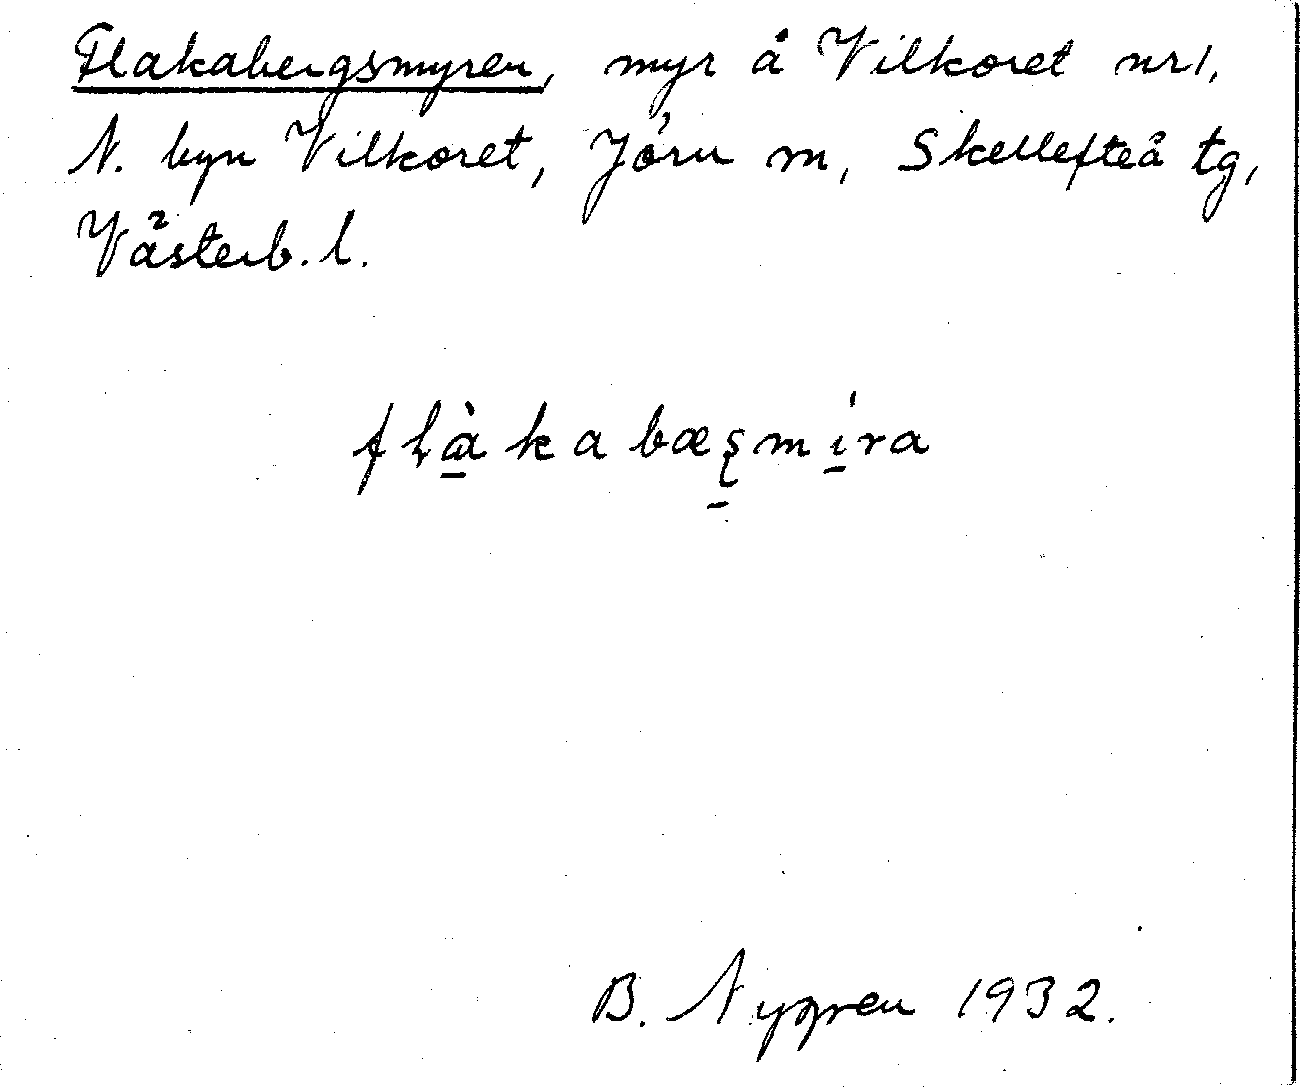 Flakabergsmyren, myr å Vilkoret nr 1,
N. byn Vilkoret, Jörn m, Skellefteå tg,
Västerb. l.
flàkabæʂmíra
B. Nygren 1932.